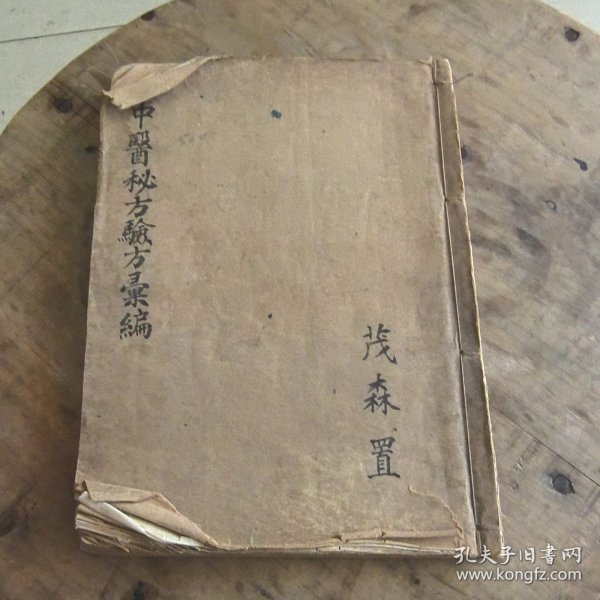 中醫秘方驗方彙編
茂森置
孔夫子旧书网
www.kongfz.com